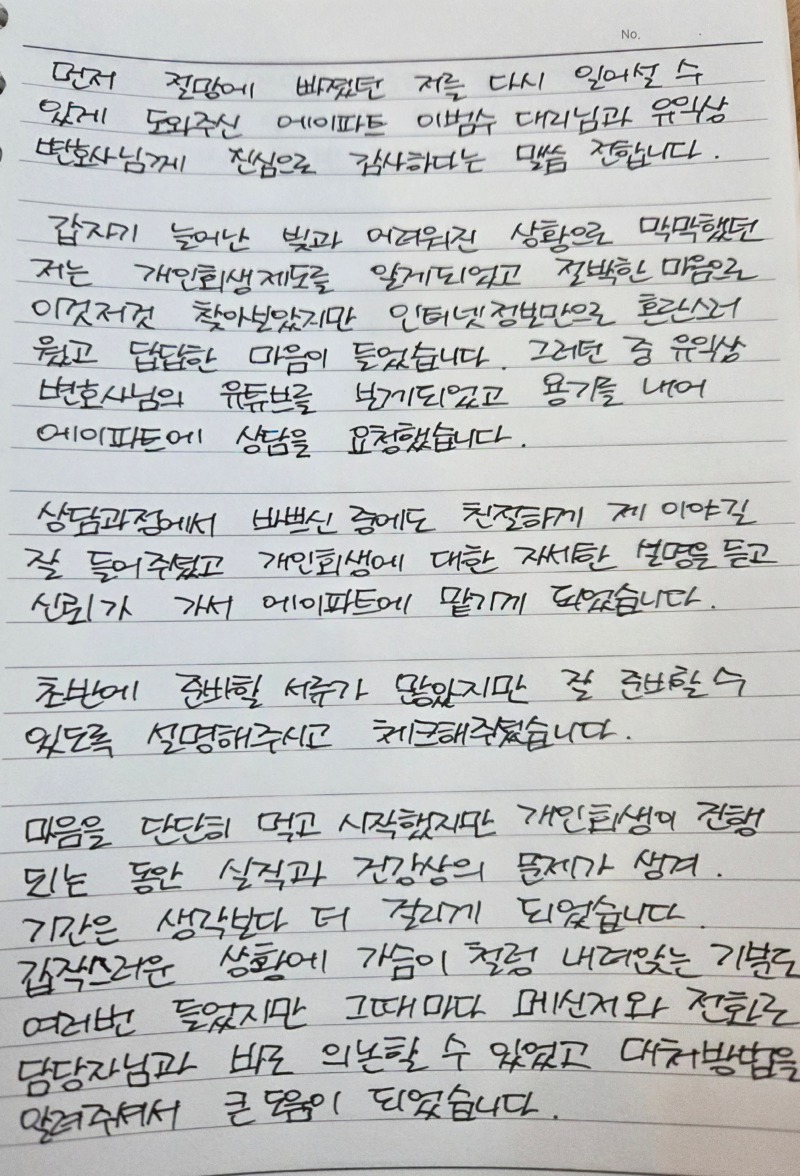 No.
먼저 절망에 빠졌던 저를 다시 일어설 수
있게 도와주신 에이파트 이범수 대리님과 유익상
변호사님께 진심으로 감사하다는 말씀 전합니다.
갑자기 늘어난 빚과 어려워진 상황으로 막막했던
저는 개인회생제도를 알게되었고 절박한 마음으로
이것저것 찾아보았지만 인터넷정보만으로 혼란스러
웠고 답답한 마음이 들었습니다. 그러던 중 유익상
변호사님의 유튜브를 보게되었고 용기를 내어
에이파트에 상담을 요청했습니다.
상담과정에서 바쁘신 중에도 친절하게 제 이야길
잘 들어주셨고 개인회생에 대한 자세한 설명을 듣고
신뢰가 가서 에이파트에 맡기게 되었습니다.
초반에 준비할 서류가 많았지만 잘 준비할 수
있도록 설명해주시고 체크해주셨습니다.
마음을 단단히 먹고 시작했지만 개인회생이 진행
되는 동안 실직과 건강상의 문제가 생겨.
기간은 생각보다 더 걸리게 되었습니다.
갑작스러운 상황에 가슴이 철렁 내려앉는 기분도
여러번 들었지만 그때마다 메신저와 전화로
담당자님과 바로 의논할 수 있었고 대처방법을
알려주셔서 큰 도움이 되었습니다.